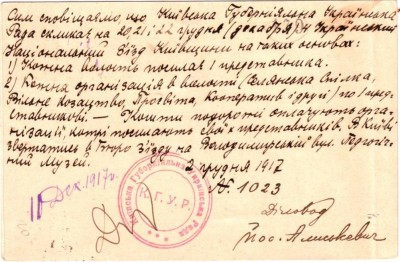 Сим сповіщаємо, що Київська Губерніяльна Українська
Рада скликає на 20, 21 і 22 грудня (декабря) Український
Національний З'їзд Київщини на таких основах:
1) Кожна волость посилає 1 представника.
2) Кожна організація в волості (Селянська Спілка,
Вільне козацтво, Просвіта, Кооператив і другі) по 1 пред-
ставникові. — Кошти подорожі оплачують орга-
нізації, котрі посилають своїх представників. В Київі
звертатись в Бюро З'їзду на Володимирській вул. Педагогіч-
ний Музей.
2 грудня 1917
№ 1023
11 Дек. 1917 г.
Київська Губерніяльна Українська Рада
К.Г.У.Р.
Діловод